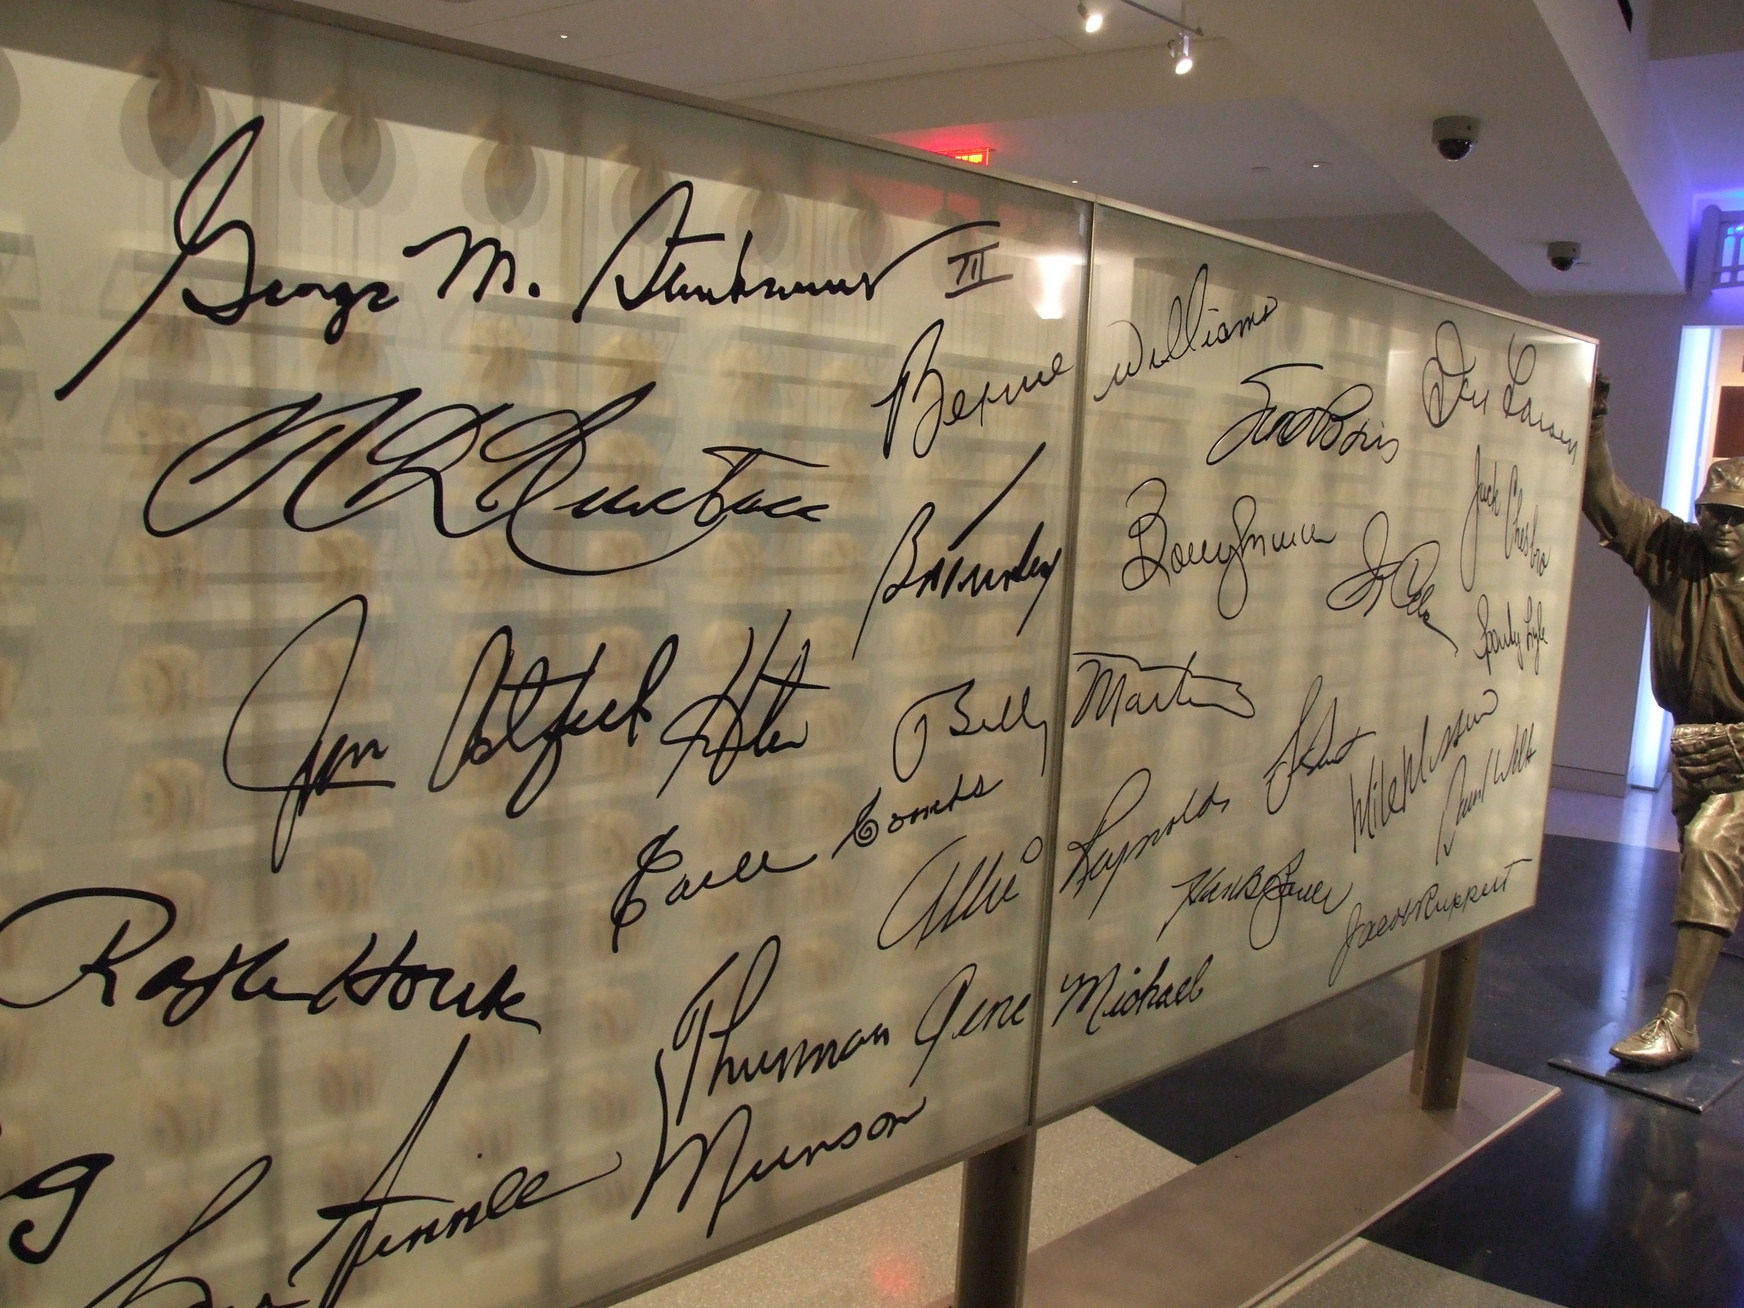 George M. Steinbrenner III
Bernie Williams
Don Larsen
Jack Chesbro
Bobby Murcer
Sparky Lyle
Jim Catfish Hunter
Billy Martin
Earle Combs
Allie Reynolds
Mike Mussina
David Wells
Hank Bauer
Jacob Ruppert
Ralph Houk
Thurman Munson
Gene Michael
g